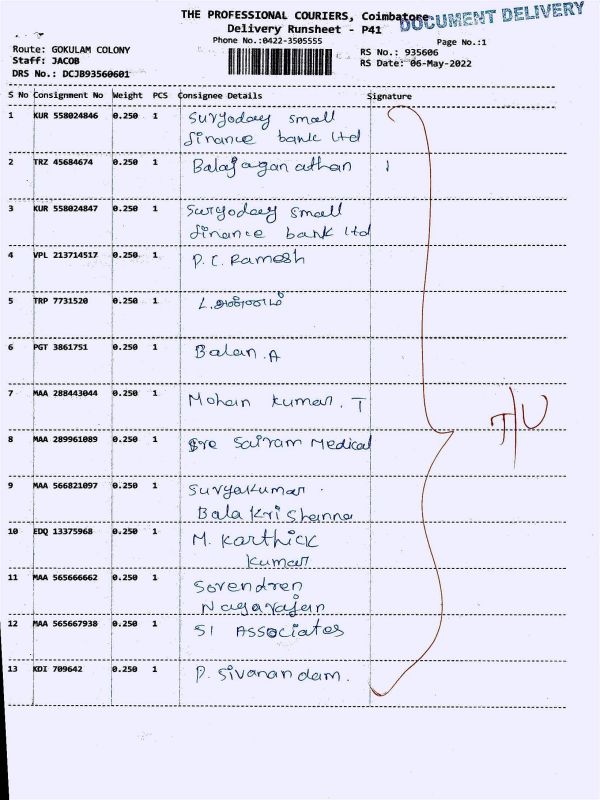 THE PROFESSIONAL COURIERS, Coimbatore
DOCUMENT DELIVERY
Delivery Runsheet - P41
Phone No.:0422-3505555
Page No.:1
Route: GOKULAM COLONY
Staff: JACOB
DRS No.: DCJB93560601
RS No.: 935606
RS Date: 06-May-2022
S No Consignment No Weight PCS Consignee Details Signature
1 KUR 558024846 0.250 1 Suryoday small
finance bank Ltd
2 TRZ 45684674 0.250 1 Balajaganathan
3 KUR 558024847 0.250 1 Suryoday small
finance bank Ltd
4 VPL 213714517 0.250 1 P.C. Ramesh
5 TRP 7731520 0.250 1
6 PGT 3861751 0.250 1 Balan.A
7 MAA 288443044 0.250 1 Mohan Kumar. T
8 MAA 289961089 0.250 1 Sre Sairam Medical
9 MAA 566821097 0.250 1 Suryakumar.
Bala Krishanna
10 EDQ 13375968 0.250 1 M. Karthick
Kumar
11 MAA 565666662 0.250 1 Sorendren
Nagarajan
12 MAA 565667938 0.250 1 SI Associates
13 KDI 709642 0.250 1 P. Sivanandam.
T/U